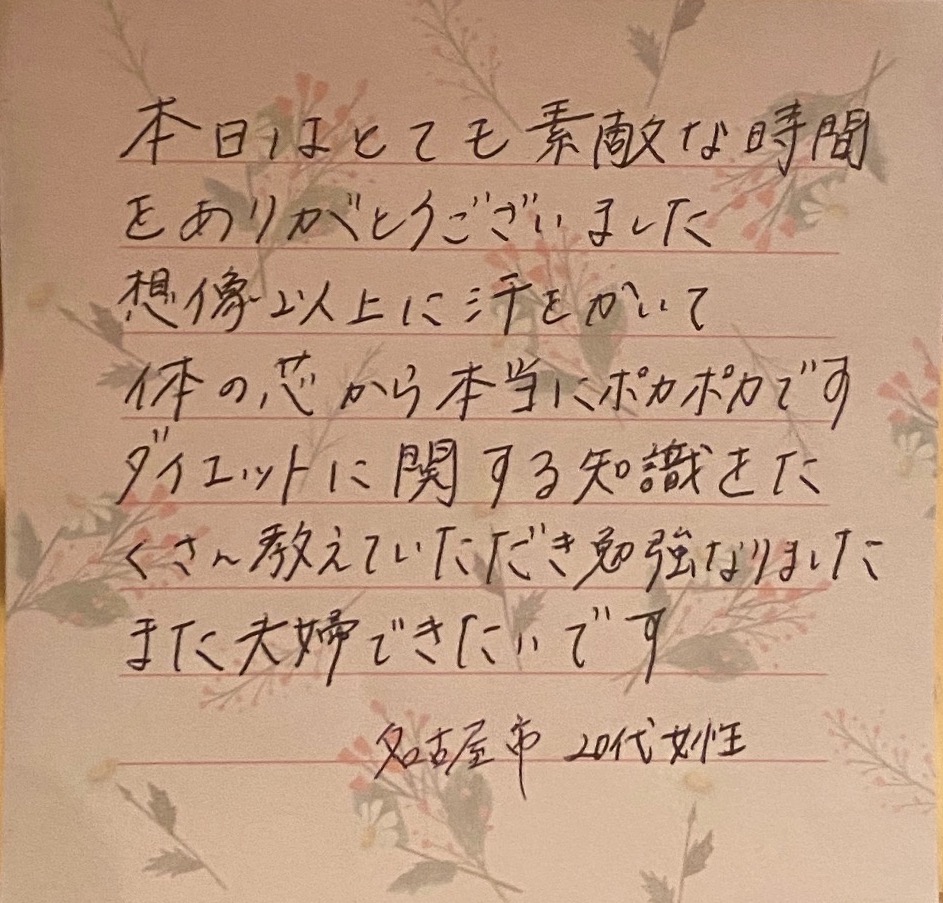 本日はとても素敵な時間
をありがとうございました
想像以上に汗をかいて
体の芯から本当にポカポカです
ダイエットに関する知識をた
くさん教えていただき勉強なりました
また夫婦できたいです
名古屋市 20代女性